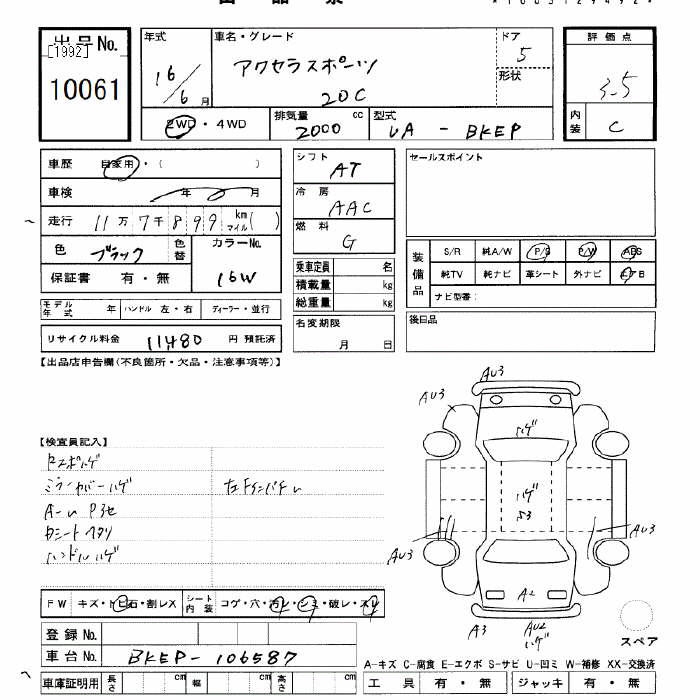 出品票
*1003129492*
出品No. [1992] 10061
年式 16/6 月
車名・グレード アクセラスポーツ 20C
ドア 5
形状
評価点 3.5
内装 C
2WD・4WD
排気量 2000 cc
型式 UA - BKEP
車歴 自家用・( )
車検 年 月
走行 11万7千899 km マイル( )
色 ブラック 色替
カラーNo. 16W
保証書 有・無
モデル年式 年 ハンドル 左・右 ディーラー・並行
リサイクル料金 11,480 円 預託済
シフト AT
冷房 AAC
燃料 G
乗車定員 名
積載量 kg
総重量 kg
名変期限 月 日
セールスポイント
装備品 S/R 純A/W P/S P/W ABS
純TV 純ナビ 革シート 外ナビ エアB
ナビ型番:
後日品
【出品店申告欄(不良箇所・欠品・注意事項等)】
【検査員記入】
ミラーカバーハゲ
シートヘタリ
ハンドルハゲ
AU3
AU3
ハゲ
ハゲ
AU3
AU3
A2
A3
AU2
ハゲ
スペア
FW キズ・トビ石・割レX
シート内装 コゲ・穴・汚レ・シミ・破レ・スレ
登録No.
車台No. BKEP-106587
車庫証明用 長さ cm 幅 cm 高さ cm
A-キズ C-腐食 E-エクボ S-サビ U-凹ミ W-補修 XX-交換済
工具 有・無 ジャッキ 有・無